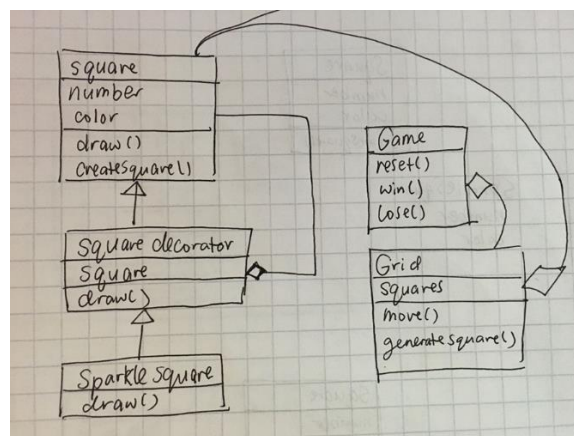 square
number
color
draw()
createsquare()
square decorator
square
draw()
Sparkle square
draw()
Game
reset()
win()
lose()
Grid
squares
move()
generate square()